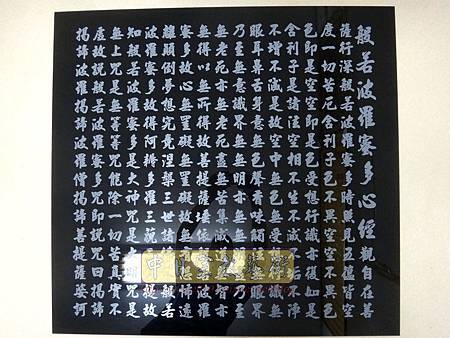 般若波羅蜜多心經觀自在菩
薩行深般若波羅蜜多時照見五蘊皆空
度一切苦厄舍利子色不異空空不異色
色即是空空即是色受想行識亦復如是
舍利子是諸法空相不生不滅不垢不淨
不增不減是故空中無色無受識無
眼耳鼻舌身意無色聲香味觸眼界
乃至無意識界無無明亦無無乃至
無老死亦無老死盡無苦集滅智亦
無得以無所得故菩提薩埵依波羅
蜜多故心無罣礙無罣礙故無怖遠
離顛倒夢想究竟涅槃三世諸般若
波羅蜜多故得阿耨多羅三藐提故
知般若波羅蜜多是大神咒是明咒是
無上咒是無等等咒能除一切苦真實不
虛故說般若波羅蜜多咒即說咒曰揭諦
揭諦波羅揭諦波羅僧揭諦菩提薩婆訶
中